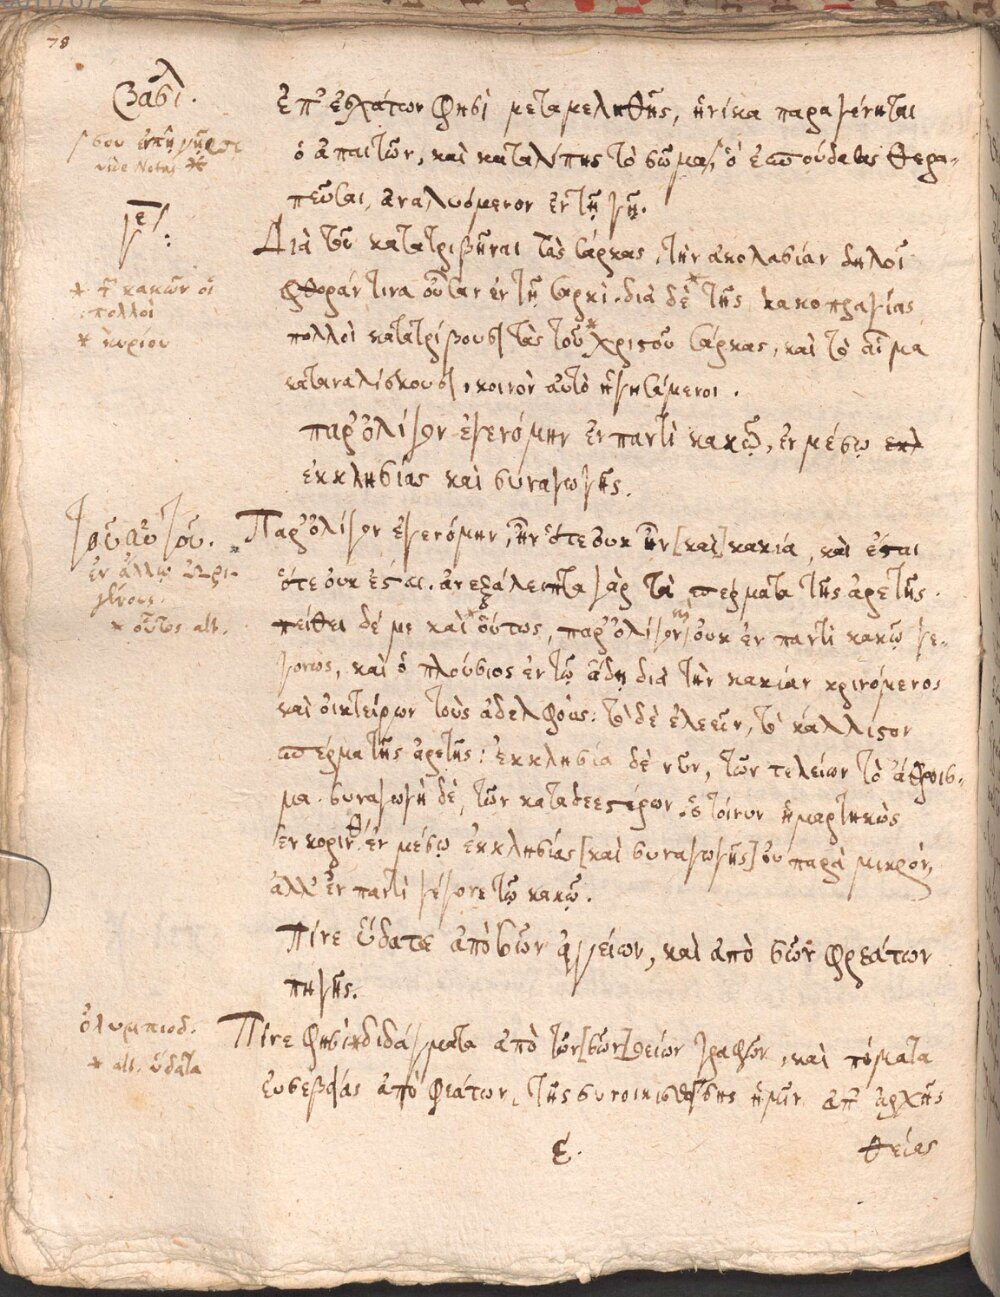 78
Βασιλ.
Ἐπ' ἐσχάτων φησὶ μεταμεληθῇς, ἡνίκα παραγένηται
ὁ ἀπαιτῶν, καὶ καταλίπῃς τὸ σῶμα, ὃ ἐσπούδασας θερα-
πεῦσαι, ἀναλωόμενον ἐν τῇ γῇ.
Διὰ τοῦ κατατριβῆναι τὰς σάρκας, τὴν ἀκολασίαν δηλοῖ
φθοράν τινα οὖσαν ἐν τῇ σαρκί. διὰ δὲ * τῆς κακοπραγίας
πολλοὶ κατατρίβουσι τὰς τοῦ * Χριστοῦ σάρκας, καὶ τὸ αἷμα
καταναλίσκουσι, κοινὸν αὐτὸ ἡγησάμενοι.
* τῶν κακῶν οἱ
πολλοὶ
* κυρίου
παρ' ὀλίγον ἐγενόμην ἐν παντὶ κακῷ, ἐν μέσῳ
ἐκκλησίας καὶ συναγωγῆς.
τοῦ αὐτοῦ.
ἐν ἄλλῳ Ὠρι-
γένους.
* οὕτως alt.
Παρ' ὀλίγον ἐγενόμην, ἦν ὅτε οὐκ ἦν [καὶ] κακία, καὶ ἔσται
ὅτε οὐκ ἔσται. ἀνεξάλειπτα γὰρ τὰ σπέρματα τῆς ἀρετῆς.
πείθει δέ με καὶ * οὕτως, παρ' ὀλίγον οὐκ ἐν παντὶ κακῷ γε-
γονὼς, καὶ ὁ πλούσιος ἐν τῷ ᾅδῃ διὰ τὴν κακίαν κρινόμενος
καὶ οἰκτείρων τοὺς ἀδελφούς: τὸ δὲ ἐλεεῖν, τὸ κάλλιστον
σπέρμα τῆς ἀρετῆς: ἐκκλησία δὲ νῦν, τῶν τελείων τὸ ἄθροισ-
μα. συναγωγὴ δὲ, τῶν καταδεεστέρων. ὁ τοίνυν ἡμαρτηκὼς
ἐν κορίνθ. ἐν μέσῳ ἐκκλησίας [καὶ συναγωγῆς] οὐ παρὰ μικρὸν,
ἀλλ' ἐν παντὶ γέγονε τῷ κακῷ.
Πίνε ὕδατα ἀπὸ σῶν ἀγγείων, καὶ ἀπὸ σῶν φρεάτων
πηγῆς.
ὀλυμπιοδ.
* alt. ὕδατα
Πίνε φησὶ διδάγματα ἀπὸ τῶν [σῶν] θείων γραφῶν, καὶ πόματα
εὐσεβείας ἀπὸ φρεάτων, τῆς συνοικισθείσης ἡμῖν ἀπ' ἀρχῆς
ε.
θείας